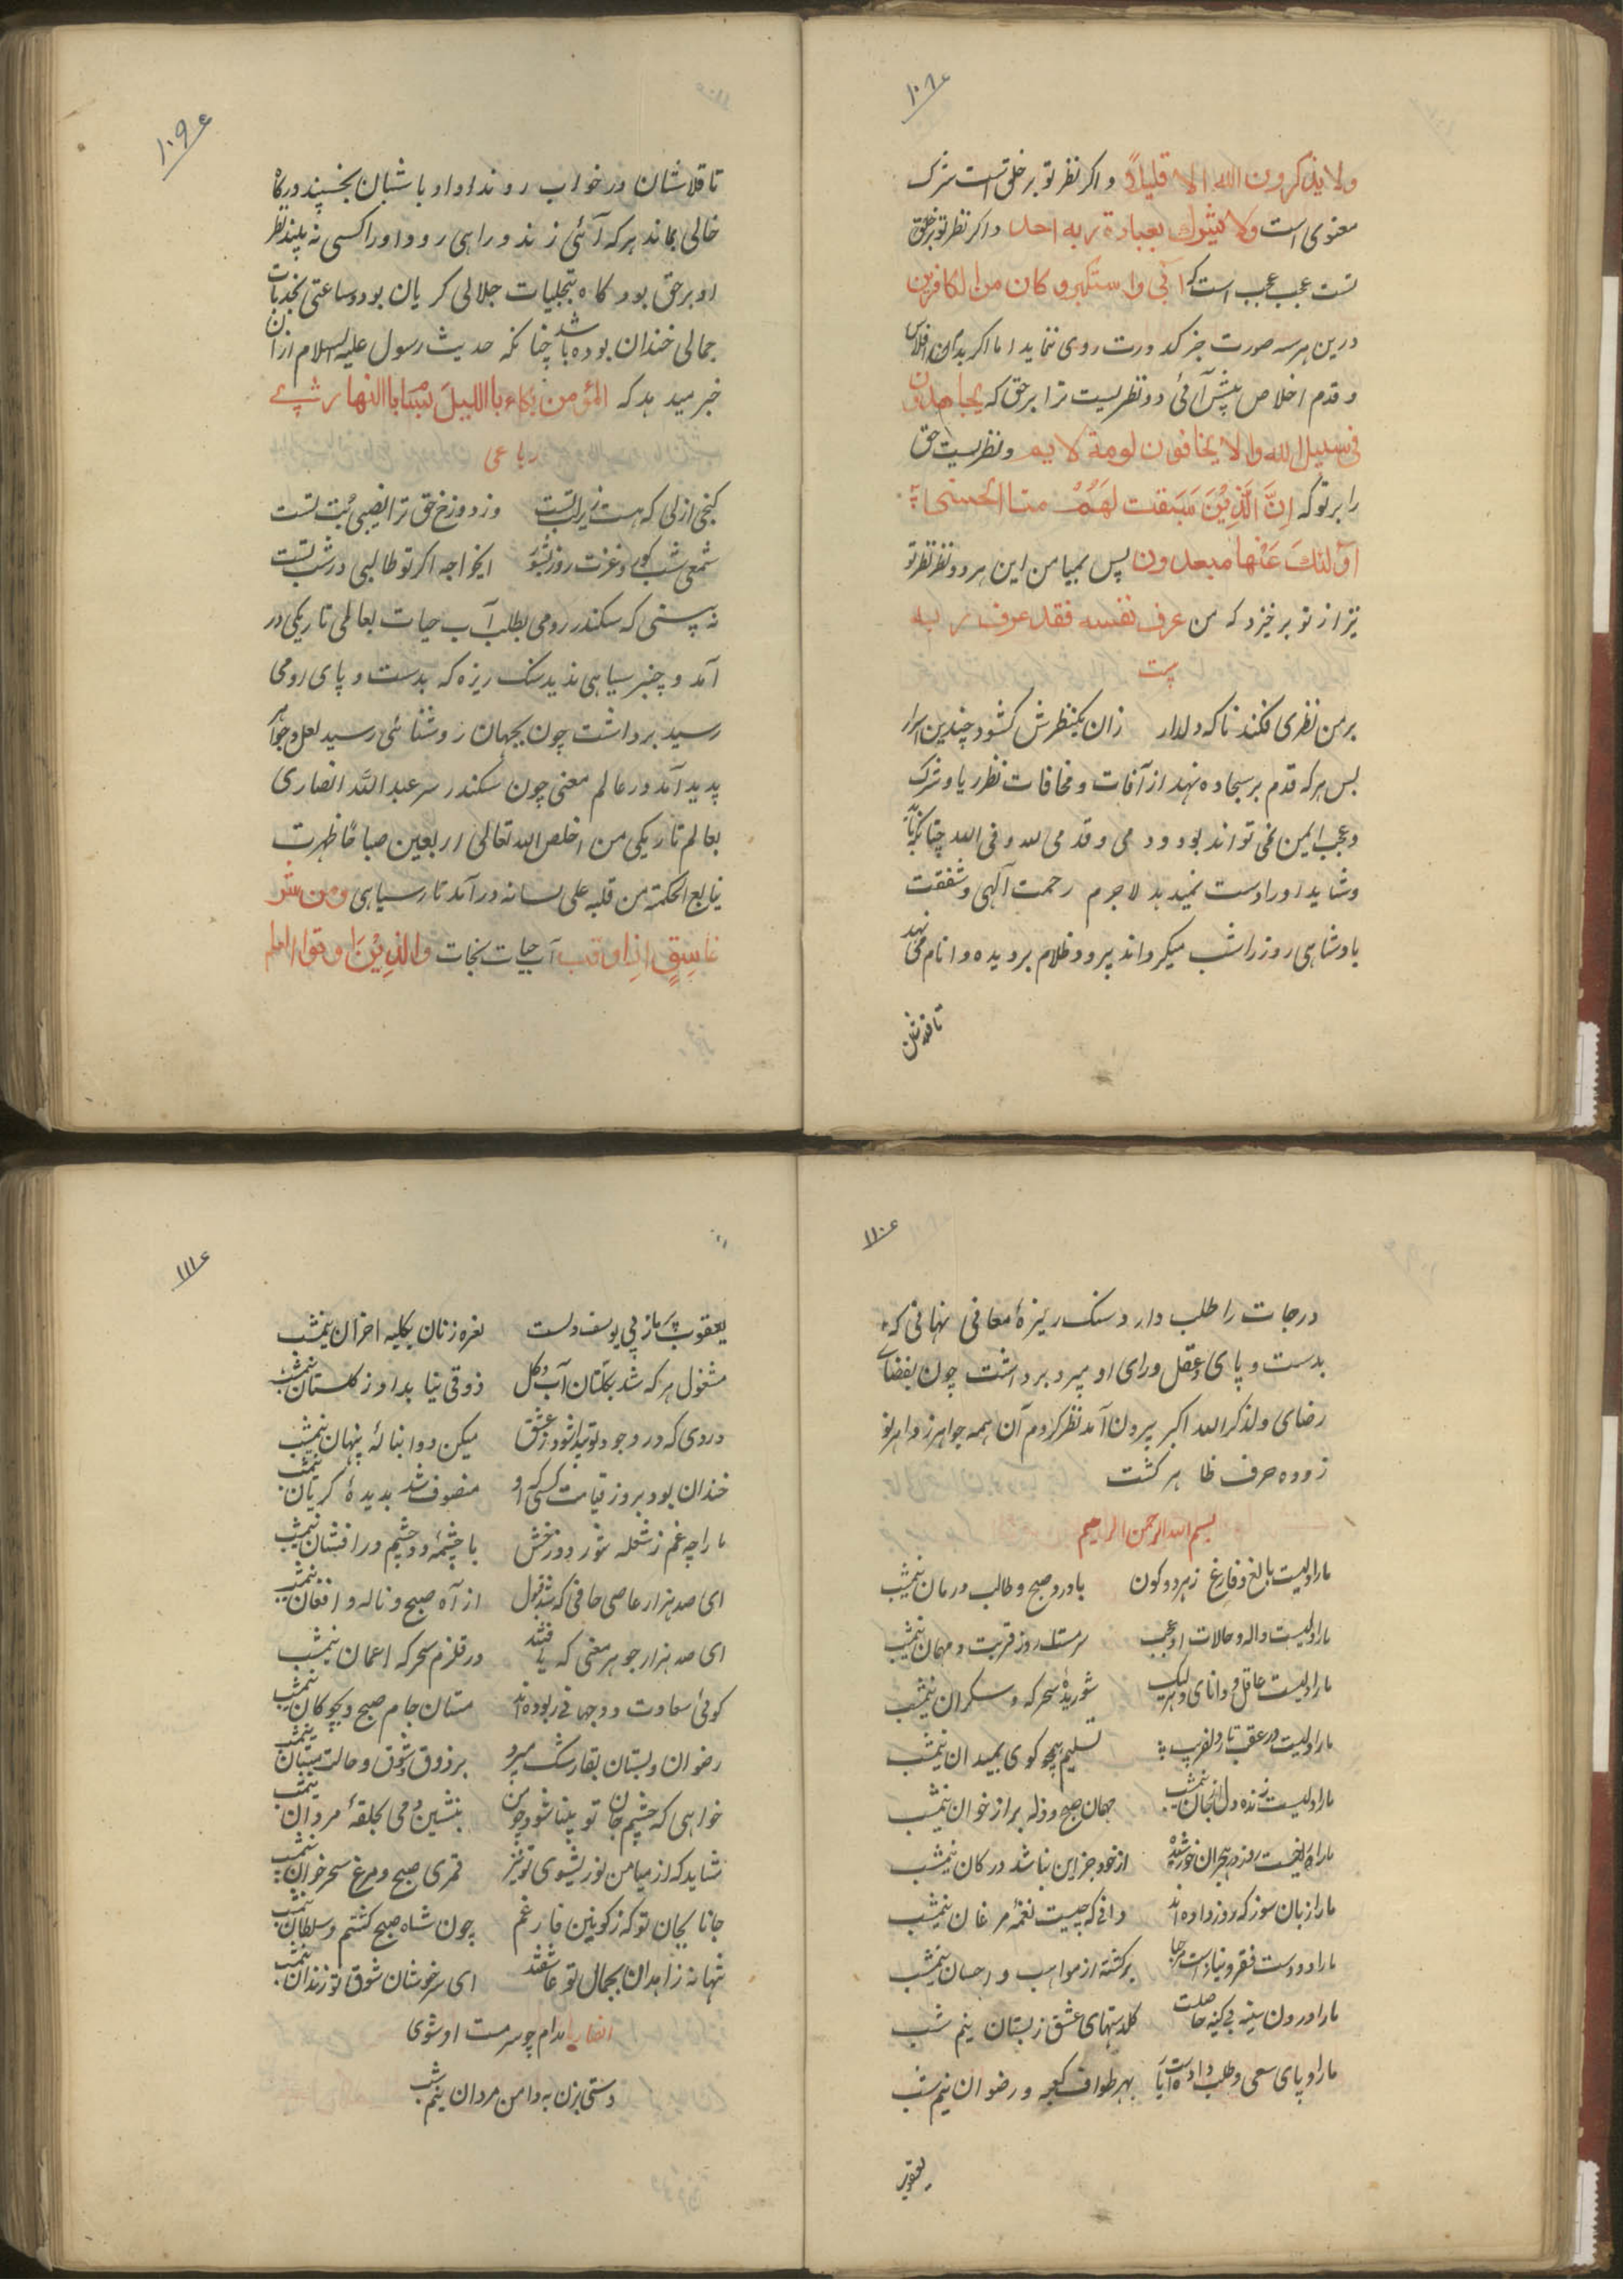 ۱۰۸
ولا یذکرون الله الا قلیلاً واکر نظر تو بر خلق تست شرک
معنوی است ولا یشرك بعبادة ربه احدا واکر نظر تو بر خلق
تست عجب عجب است که ابی واستکبر وکان من الکافرین
درین هر سه صورت جز کدورت روی ننماید اما اکر
وقدم اخلاص پیش آئی دو نظریست ترا بر حق که یجاهدون
فی سبیل الله ولا یخافون لومة لایم ونظریست حق
را بر تو که اِنَّ الَّذِیْنَ سَبَقت لَهُمْ منا الحسنی
اولئك عَنْها مبعدون پس بمیامن این هر دو نظر نظر تو
نیز از تو برخیزد که من عرف نفسه فقد عرف ربه
بیت
بر من نظری فکند ناکه دلدار زان یکنظرش کشود چندین اسرار
بس هر که قدم بر سجاده نهد از آفات ومخافات نظر ریا وشرک
وعجب ایمن نمی تواند بود ودمی وقدمی لله وفی الله چنانکه
وشاید اورا دست نمیدهد لاجرم رحمت آلهی وشفقت
بادشاهی روز را شب میکرداند وپرده ظلام بر دیده انام می نهد
تا قلاشان
۱۰۹
تا قلاشان در خواب روند واوباشان بخسپند ودرکاه
خالی بماند هر که آئی زند وراهی رود اورا کسی نه بیند نظر
او بر حق بود کاه بتجلیات جلالی کریان بود وساعتی بجذبات
جمالی خندان بوده باشد چنانکه حدیث رسول علیه السلام از آن
خبر میدهد که المؤمن بکاء باللیل بساما بالنهار
رباعی
کنجی ازلی که هست زیر لبتست وز دوزخ حق ترا نصیبی تبت تست
شمعی شب کور وغرت روز بشو ایخواجه اکر تو طالبی در شب تست
نه بینی که سکندر رومی بطلب آب حیات بعالم تاریکی در
آمد وچیز سیاهی ندید سنک ریزه که بدست وپای رومی
رسید برداشت چون بجهان روشنائی رسید لعل وجواهر
پدید آمد در عالم معنی چون سکندر سر عبد الله انصاری
بعالم تاریکی من اخلص لله تعالی اربعین صباحا ظهرت
ینابیع الحکمة من قلبه علی لسانه در آمد تا در سیاهی ومن شر
غاسِقٍ اذا وقب آب حیات نجات والذِیْنَ اوتوا العلم
۱۱۰
درجات را طلب دارد وسنک ریزهٔ معانی نهانی که
بدست وپای وعقل ورای او سپرد برداشت چون بفضای
رضای ولذکر الله اکبر بیرون آمد نظر کردم آن همه جواهر زواهر نو
زوده حرف ظاهر کشت
بسم الله الرحمن الرحیم
مارا دلیست بالغ وفارغ ز هر دو کون با درد صبح وطالب درمان نیمشب
مارا دلیست واله وحالات او عجب سرمست روز قربت ومهمان نیمشب
مارا دلیست عاقل ودانای ولیک شوریدهٔ سحر که وسکران نیمشب
مارا دلیست در عقب تار دلفریب تسلیم همچو کوی بمیدان نیمشب
مارا دلیست زنده دل از جان نیمشب مهمان صبح وزله بر از خوان نیمشب
از خود جز این نباشد در کان نیمشب
مارا زبان سوز که روز داده اند دانی که چیست نغمهٔ مرغان نیمشب
مارا دو دست فقر ونیاز است مرحبا برکشته از مواهب واحسان نیمشب
مارا درون سینهٔ بی کینه حاصلت کلدستهای عشق ز بستان نیم شب
مارا دو پای سعی وطلب داده است بهر طواف کعبه ورضوان نیم شب
یعقوب
۱۱۱
یعقوب بر نماز پی یوسف دلست نعره زنان بکلبه احزان نیمشب
مشغول هر که شد بکلستان آب وکل ذوقی نیابد او ز کلستان نیمشب
دردی که در وجود تو پیدا شود ز عشق میکن دوا بنالهٔ پنهان نیمشب
خندان بود بروز قیامت کسی که او موصوف شد بدیدهٔ کریان نیمشب
ما را چه غم ز شعله شور دوزخش با چشمهٔ دو چشم در افشان نیمشب
ای صد هزار عاصی جافی که شد قبول از آه صبح وناله وافغان نیمشب
ای صد هزار جوهر معنی که یافتند در قلزم سحر که اعمان نیمشب
کوئی سعادت دو جهانی ربوده اند مستان جام صبح وچوکان نیمشب
رضوان وبستان بقارش سپرد بر ذوق وشوق وحالت مستان نیمشب
خواهی که چشم جان تو بینا شود چو بنشین دمی بحلقهٔ مردان نیمشب
شاید که از میامن نور بشوی تو نیز قمری صبح ومرغ سحر خوان نیمشب
جانا بجان تو که ز کونین فارغم چون شاه صبح کشتم وسلطان نیمشب
تنها نه زاهدان بجمال تو عاشقند ای سرخوشان شوق تو رندان نیمشب
انصاریا مدام چو سرمست او شوی
دستی بزن به دامن مردان نیم شب